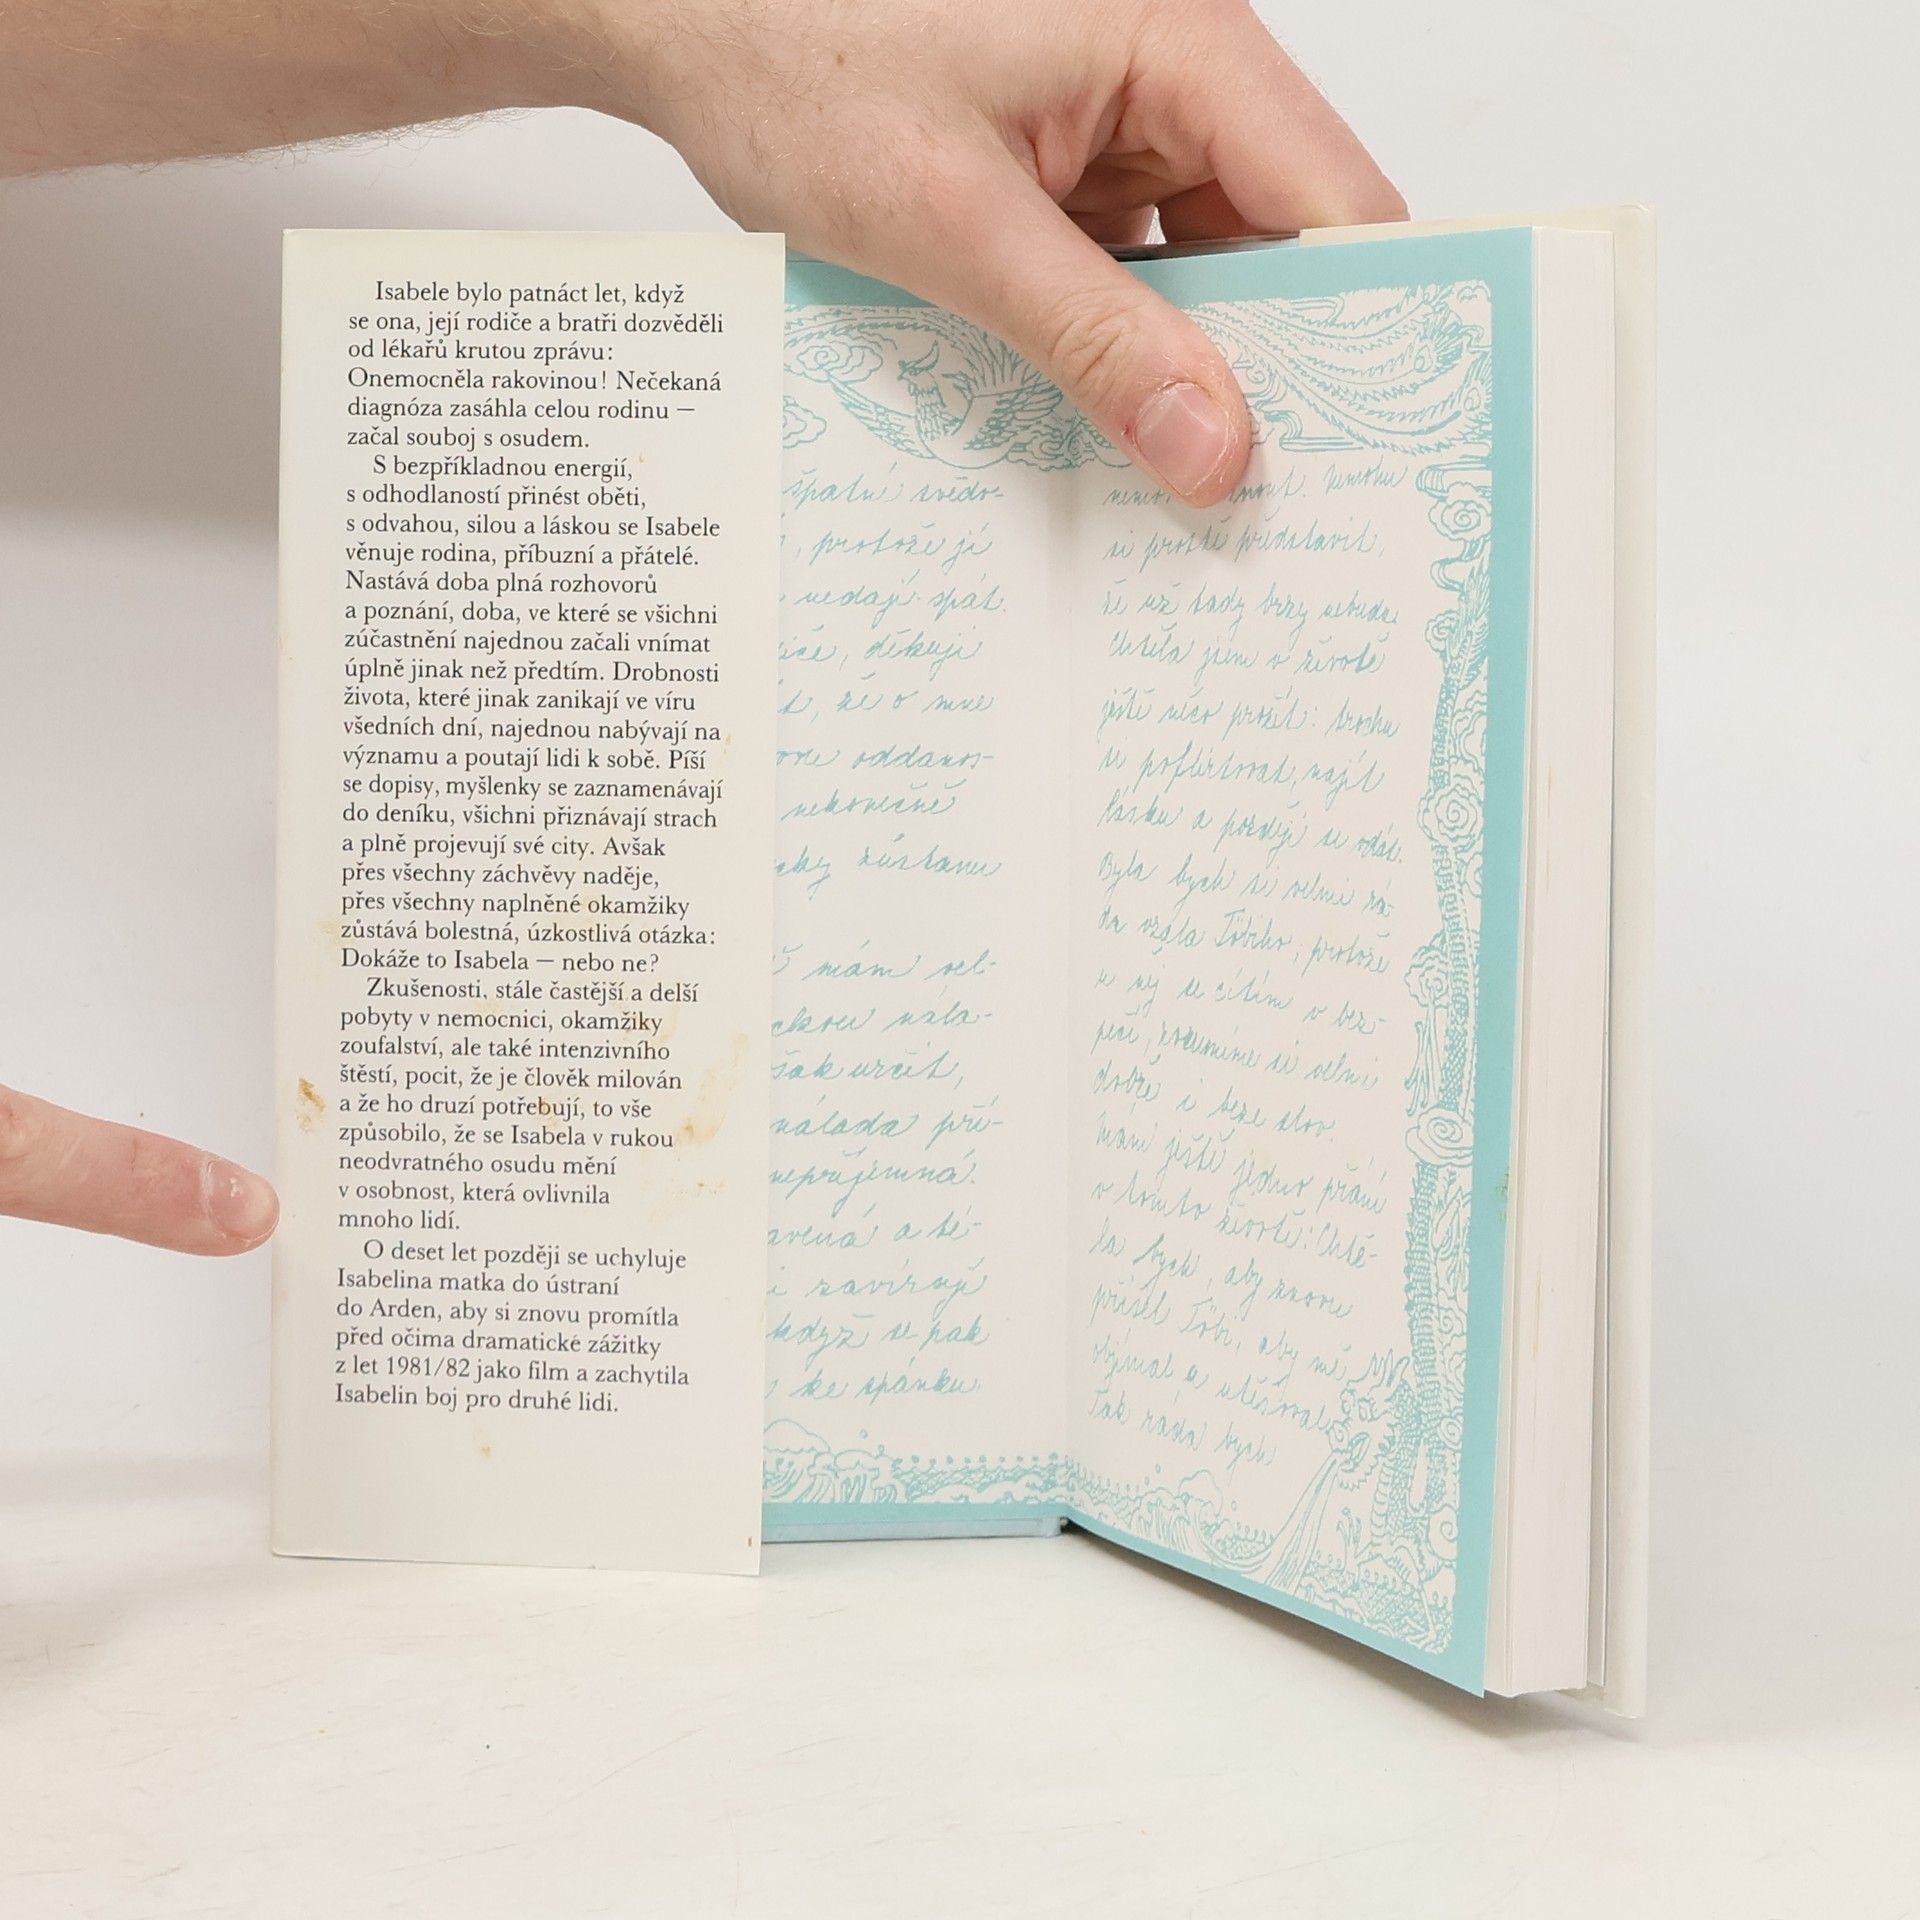 Isabele bylo patnáct let, když
se ona, její rodiče a bratři dozvěděli
od lékařů krutou zprávu:
Onemocněla rakovinou! Nečekaná
diagnóza zasáhla celou rodinu —
začal souboj s osudem.
S bezpříkladnou energií,
s odhodlaností přinést oběti,
s odvahou, silou a láskou se Isabele
věnuje rodina, příbuzní a přátelé.
Nastává doba plná rozhovorů
a poznání, doba, ve které se všichni
zúčastnění najednou začali vnímat
úplně jinak než předtím. Drobnosti
života, které jinak zanikají ve víru
všedních dní, najednou nabývají na
významu a poutají lidi k sobě. Píší
se dopisy, myšlenky se zaznamenávají
do deníku, všichni přiznávají strach
a plně projevují své city. Avšak
přes všechny záchvěvy naděje,
přes všechny naplněné okamžiky
zůstává bolestná, úzkostlivá otázka:
Dokáže to Isabela — nebo ne?
Zkušenosti, stále častější a delší
pobyty v nemocnici, okamžiky
zoufalství, ale také intenzivního
štěstí, pocit, že je člověk milován
a že ho druzí potřebují, to vše
způsobilo, že se Isabela v rukou
neodvratného osudu mění
v osobnost, která ovlivnila
mnoho lidí.
O deset let později se uchyluje
Isabelina matka do ústraní
do Arden, aby si znovu promítla
před očima dramatické zážitky
z let 1981/82 jako film a zachytila
Isabelin boj pro druhé lidi.
špatné svědo-
, protože jí
nedají spát.
, děkuji
, že o mne
oddanos-
nekonečně
zůstanu
mám vel-
nála-
šak určit,
nálada při-
nepříjemná.
a tě-
i zavírají
když se pak
ke spánku.
Nemohu
si prostě představit,
že už tady brzy nebudu.
Chtěla jsem v životě
ještě něco prožít: trochu
si poflirtovat, najít
lásku a později se vdát.
Byla bych si velmi rá-
da vzala Tobiho, protože
u něj se cítím v bez-
pečí, rozumíme si velmi
dobře i beze slov.
Mám ještě jedno přání
v tomto životě: Chtě-
la bych, aby znovu
přišel Tobi, aby mě
objímal a utěšoval.
Tak ráda bych